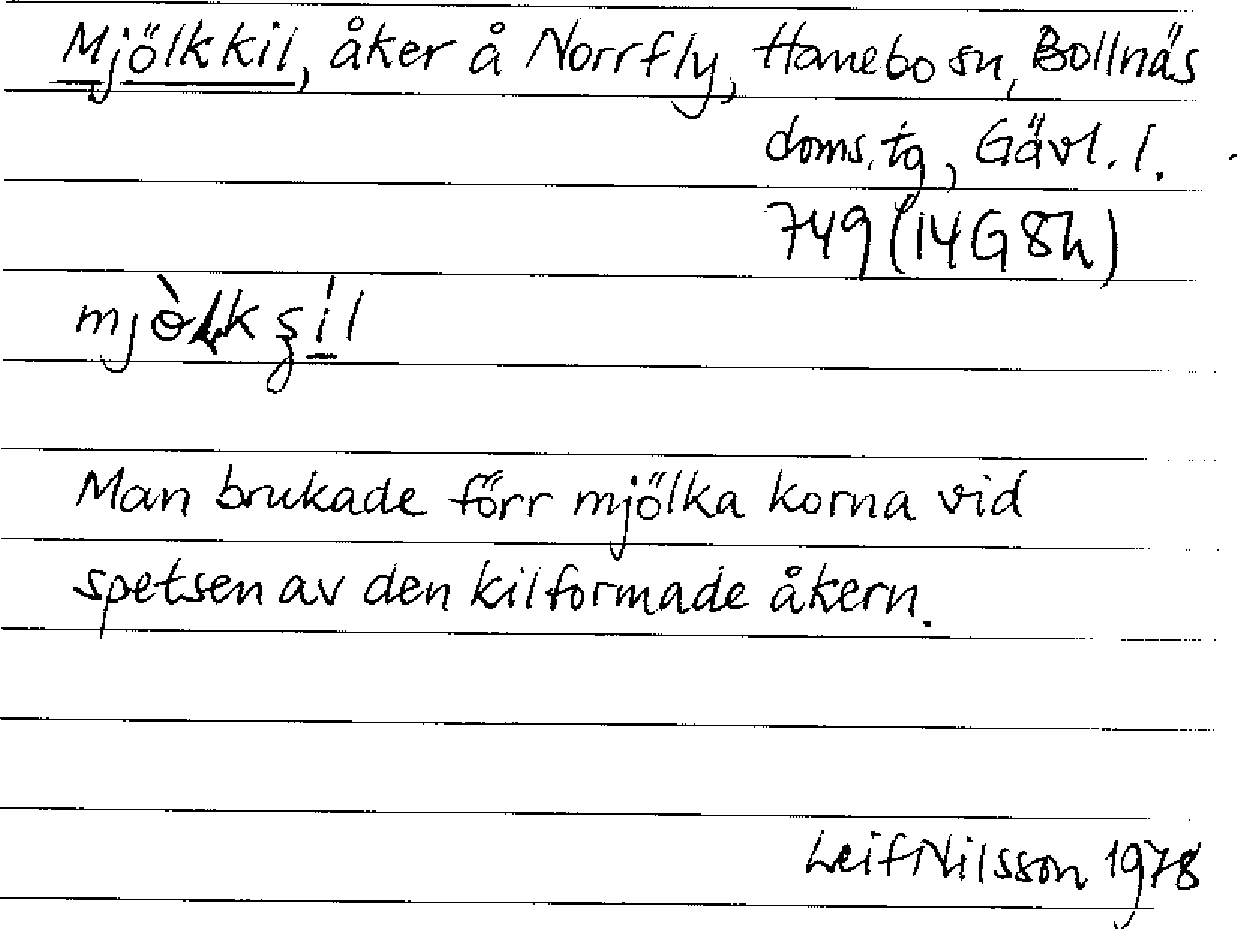 Mjölkkil, åker å Norrfly, Hanebo sn, Bollnäs
doms.tg, Gävl. l.
749 (14G8h)
Man brukade förr mjölka korna vid
spetsen av den kilformade åkern.
Leif Nilsson 1978